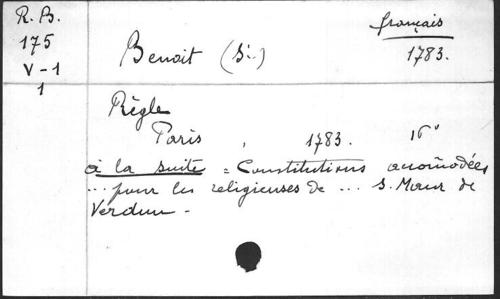 R. B.
175
V-1
1
français
1783.
Benoit (St.)
Règle
Paris, 1783. 16°
à la suite = Constitutions accomodées
... pour les religieuses de ... S. Maur de
Verdun -